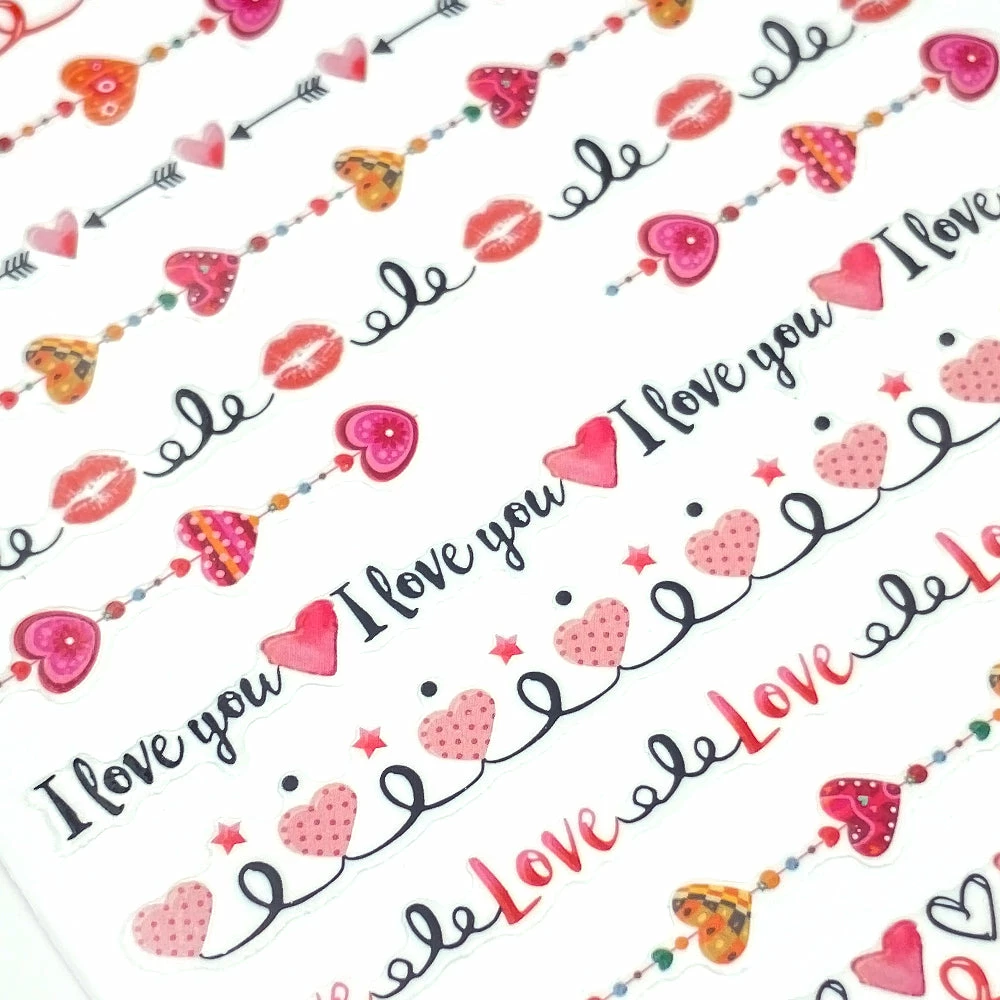 I love you I love you I love you I love
Love Love Lo